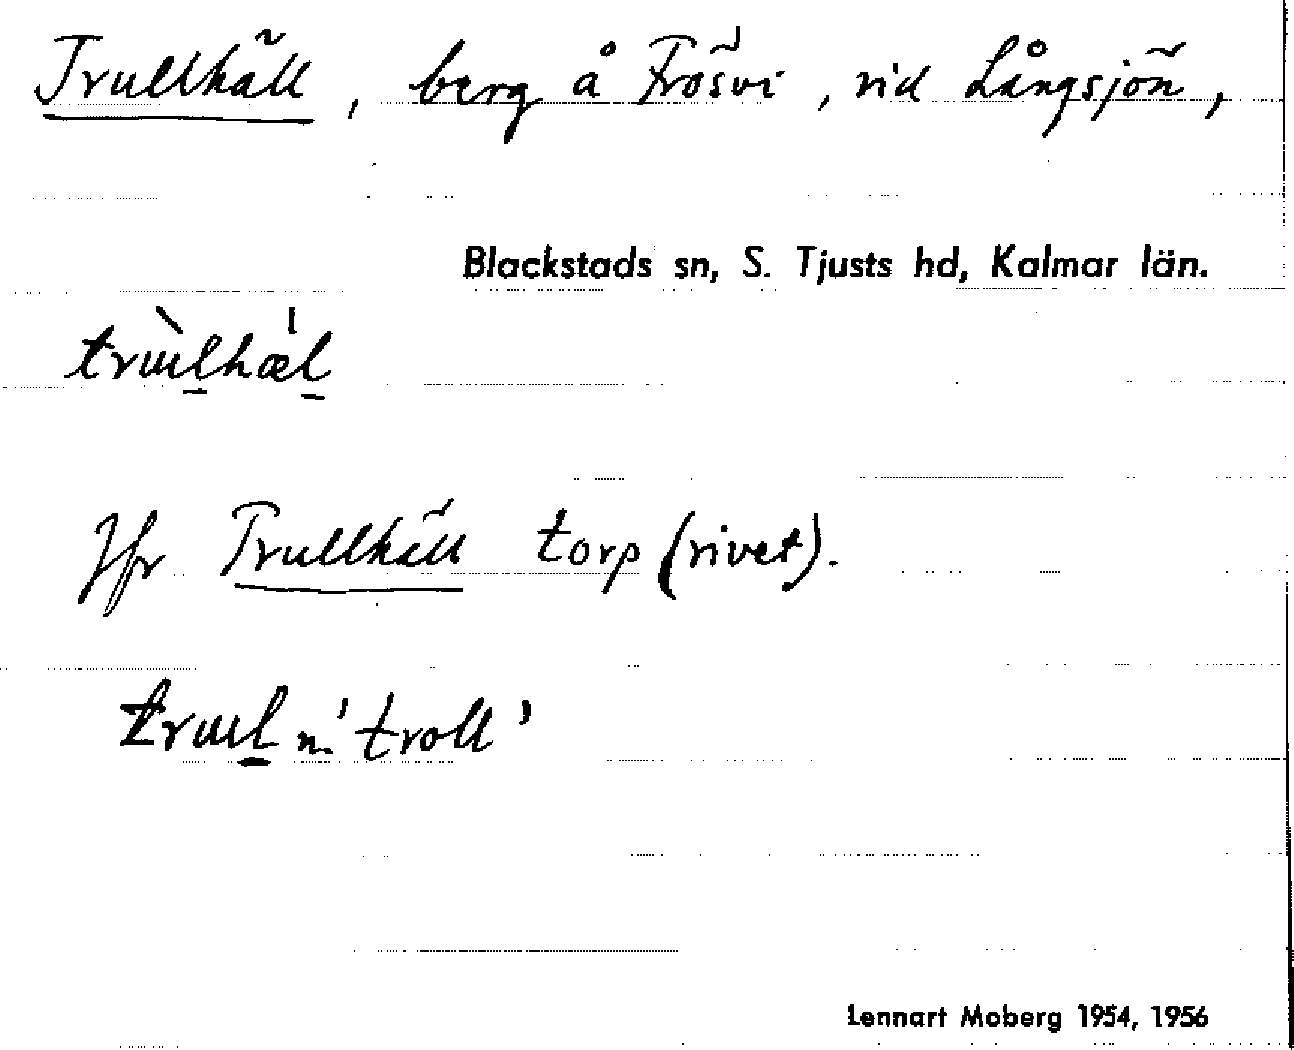 Trullhäll, berg å Frösvi, vid Långsjön,
Blackstads sn, S. Tjusts hd, Kalmar län.
trɯ̀l̲hæ̍l̲
Jfr Trullhäll torp (rivet).
trɯl̲ n. 'troll'
Lennart Moberg 1954, 1956